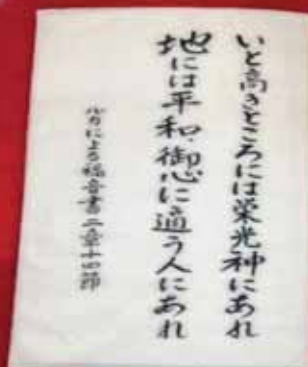 いと高きところには栄光神にあれ
地には平和、御心に適う人にあれ
ルカによる福音書二章十四節